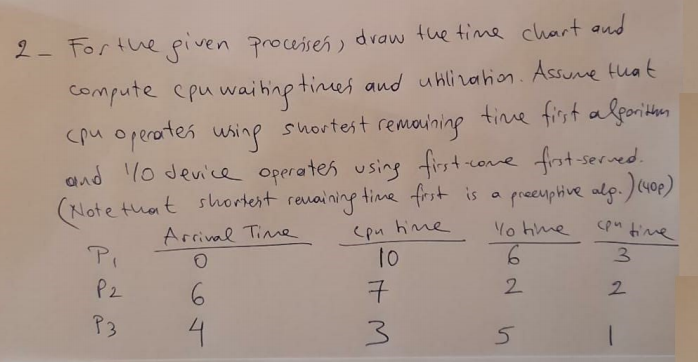 2- For the given processes, draw the time chart and
compute cpu waiting times and utilization. Assume that
cpu operates using shortest remaining time first algorithm
and I/O device operates using first-come first-served.
(Note that shortest remaining time first is a preemptive alg.) (40p)
Arrival Time cpu time I/o time cpu time
P1 0 10 6 3
P2 6 7 2 2
P3 4 3 5 1